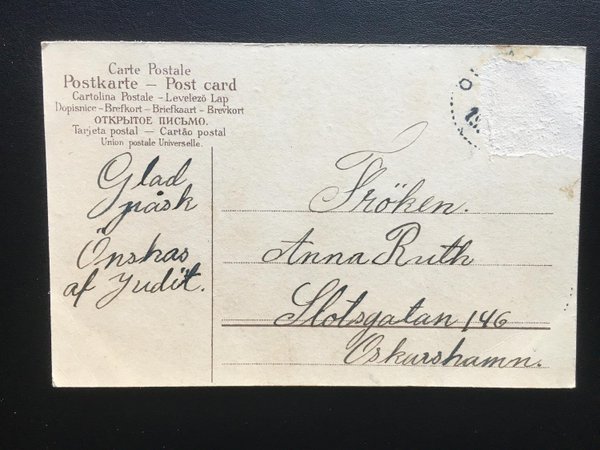 Carte Postale
Postkarte – Post card
Cartolina Postale – Levelező Lap
Dopisnice – Brefkort – Briefkaart – Brevkort
ОТКРЫТОЕ ПИСЬМО.
Tarjeta postal — Cartão postal
Union postale Universelle.
Glad
påsk
Önskas
af Judit.
Fröken.
Anna Ruth
Slotsgatan 146
Oskarshamn.